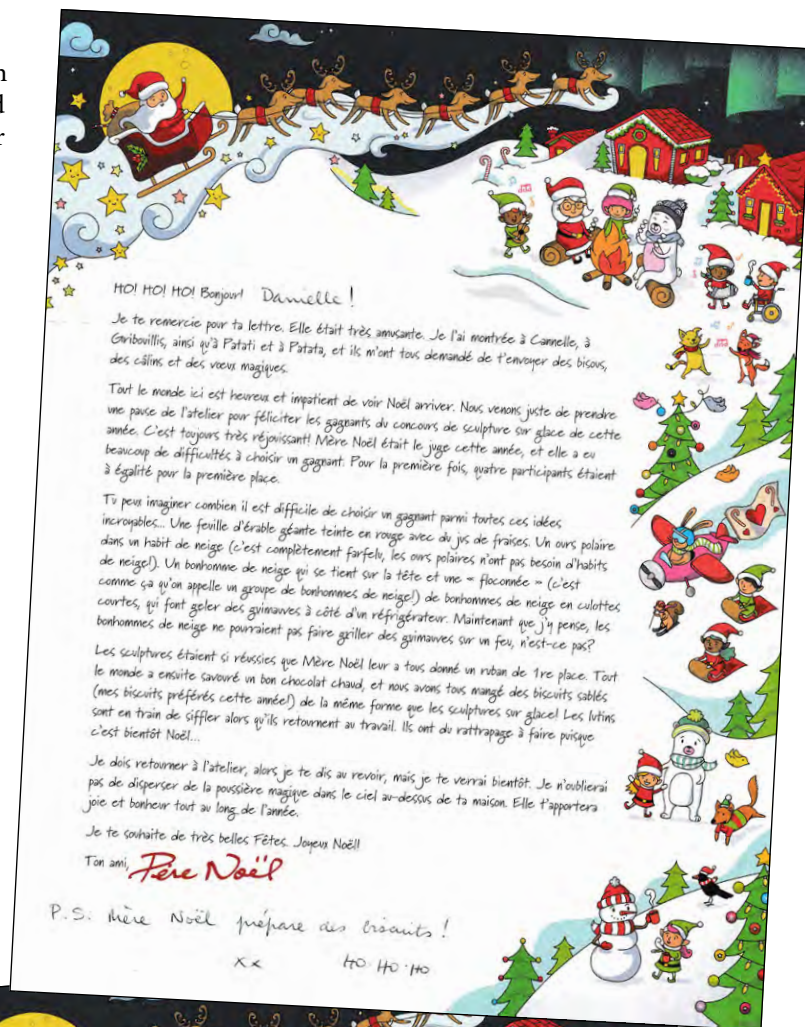 n
d
r
HO! HO! HO! Bonjour! Danielle !
Je te remercie pour ta lettre. Elle était très amusante. Je l'ai montrée à Cannelle, à
Gribouillis, ainsi qu'à Patati et à Patata, et ils m'ont tous demandé de t'envoyer des bisous,
des câlins et des vœux magiques.
Tout le monde ici est heureux et impatient de voir Noël arriver. Nous venons juste de prendre
une pause de l'atelier pour féliciter les gagnants du concours de sculpture sur glace de cette
année. C'est toujours très réjouissant! Mère Noël était le juge cette année, et elle a eu
beaucoup de difficultés à choisir un gagnant. Pour la première fois, quatre participants étaient
à égalité pour la première place.
Tu peux imaginer combien il est difficile de choisir un gagnant parmi toutes ces idées
incroyables... Une feuille d'érable géante teinte en rouge avec du jus de fraises. Un ours polaire
dans un habit de neige (c'est complètement farfelu, les ours polaires n'ont pas besoin d'habits
de neige!). Un bonhomme de neige qui se tient sur la tête et une « floconnée » (c'est
comme ça qu'on appelle un groupe de bonhommes de neige!) de bonhommes de neige en culottes
courtes, qui font geler des guimauves à côté d'un réfrigérateur. Maintenant que j'y pense, les
bonhommes de neige ne pourraient pas faire griller des guimauves sur un feu, n'est-ce pas?
Les sculptures étaient si réussies que Mère Noël leur a tous donné un ruban de 1re place. Tout
le monde a ensuite savouré un bon chocolat chaud, et nous avons tous mangé des biscuits sablés
(mes biscuits préférés cette année!) de la même forme que les sculptures sur glace! Les lutins
sont en train de siffler alors qu'ils retournent au travail. Ils ont du rattrapage à faire puisque
c'est bientôt Noël...
Je dois retourner à l'atelier, alors je te dis au revoir, mais je te verrai bientôt. Je n'oublierai
pas de disperser de la poussière magique dans le ciel au-dessus de ta maison. Elle t'apportera
joie et bonheur tout au long de l'année.
Je te souhaite de très belles Fêtes. Joyeux Noël!
Ton ami, Père Noël
P.S. Mère Noël prépare des biscuits !
xx HO HO HO